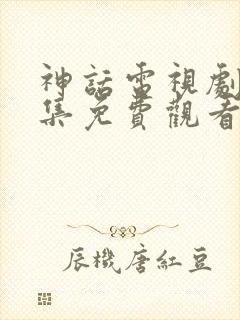 神話電視劇
集免費觀看
辰機唐紅豆